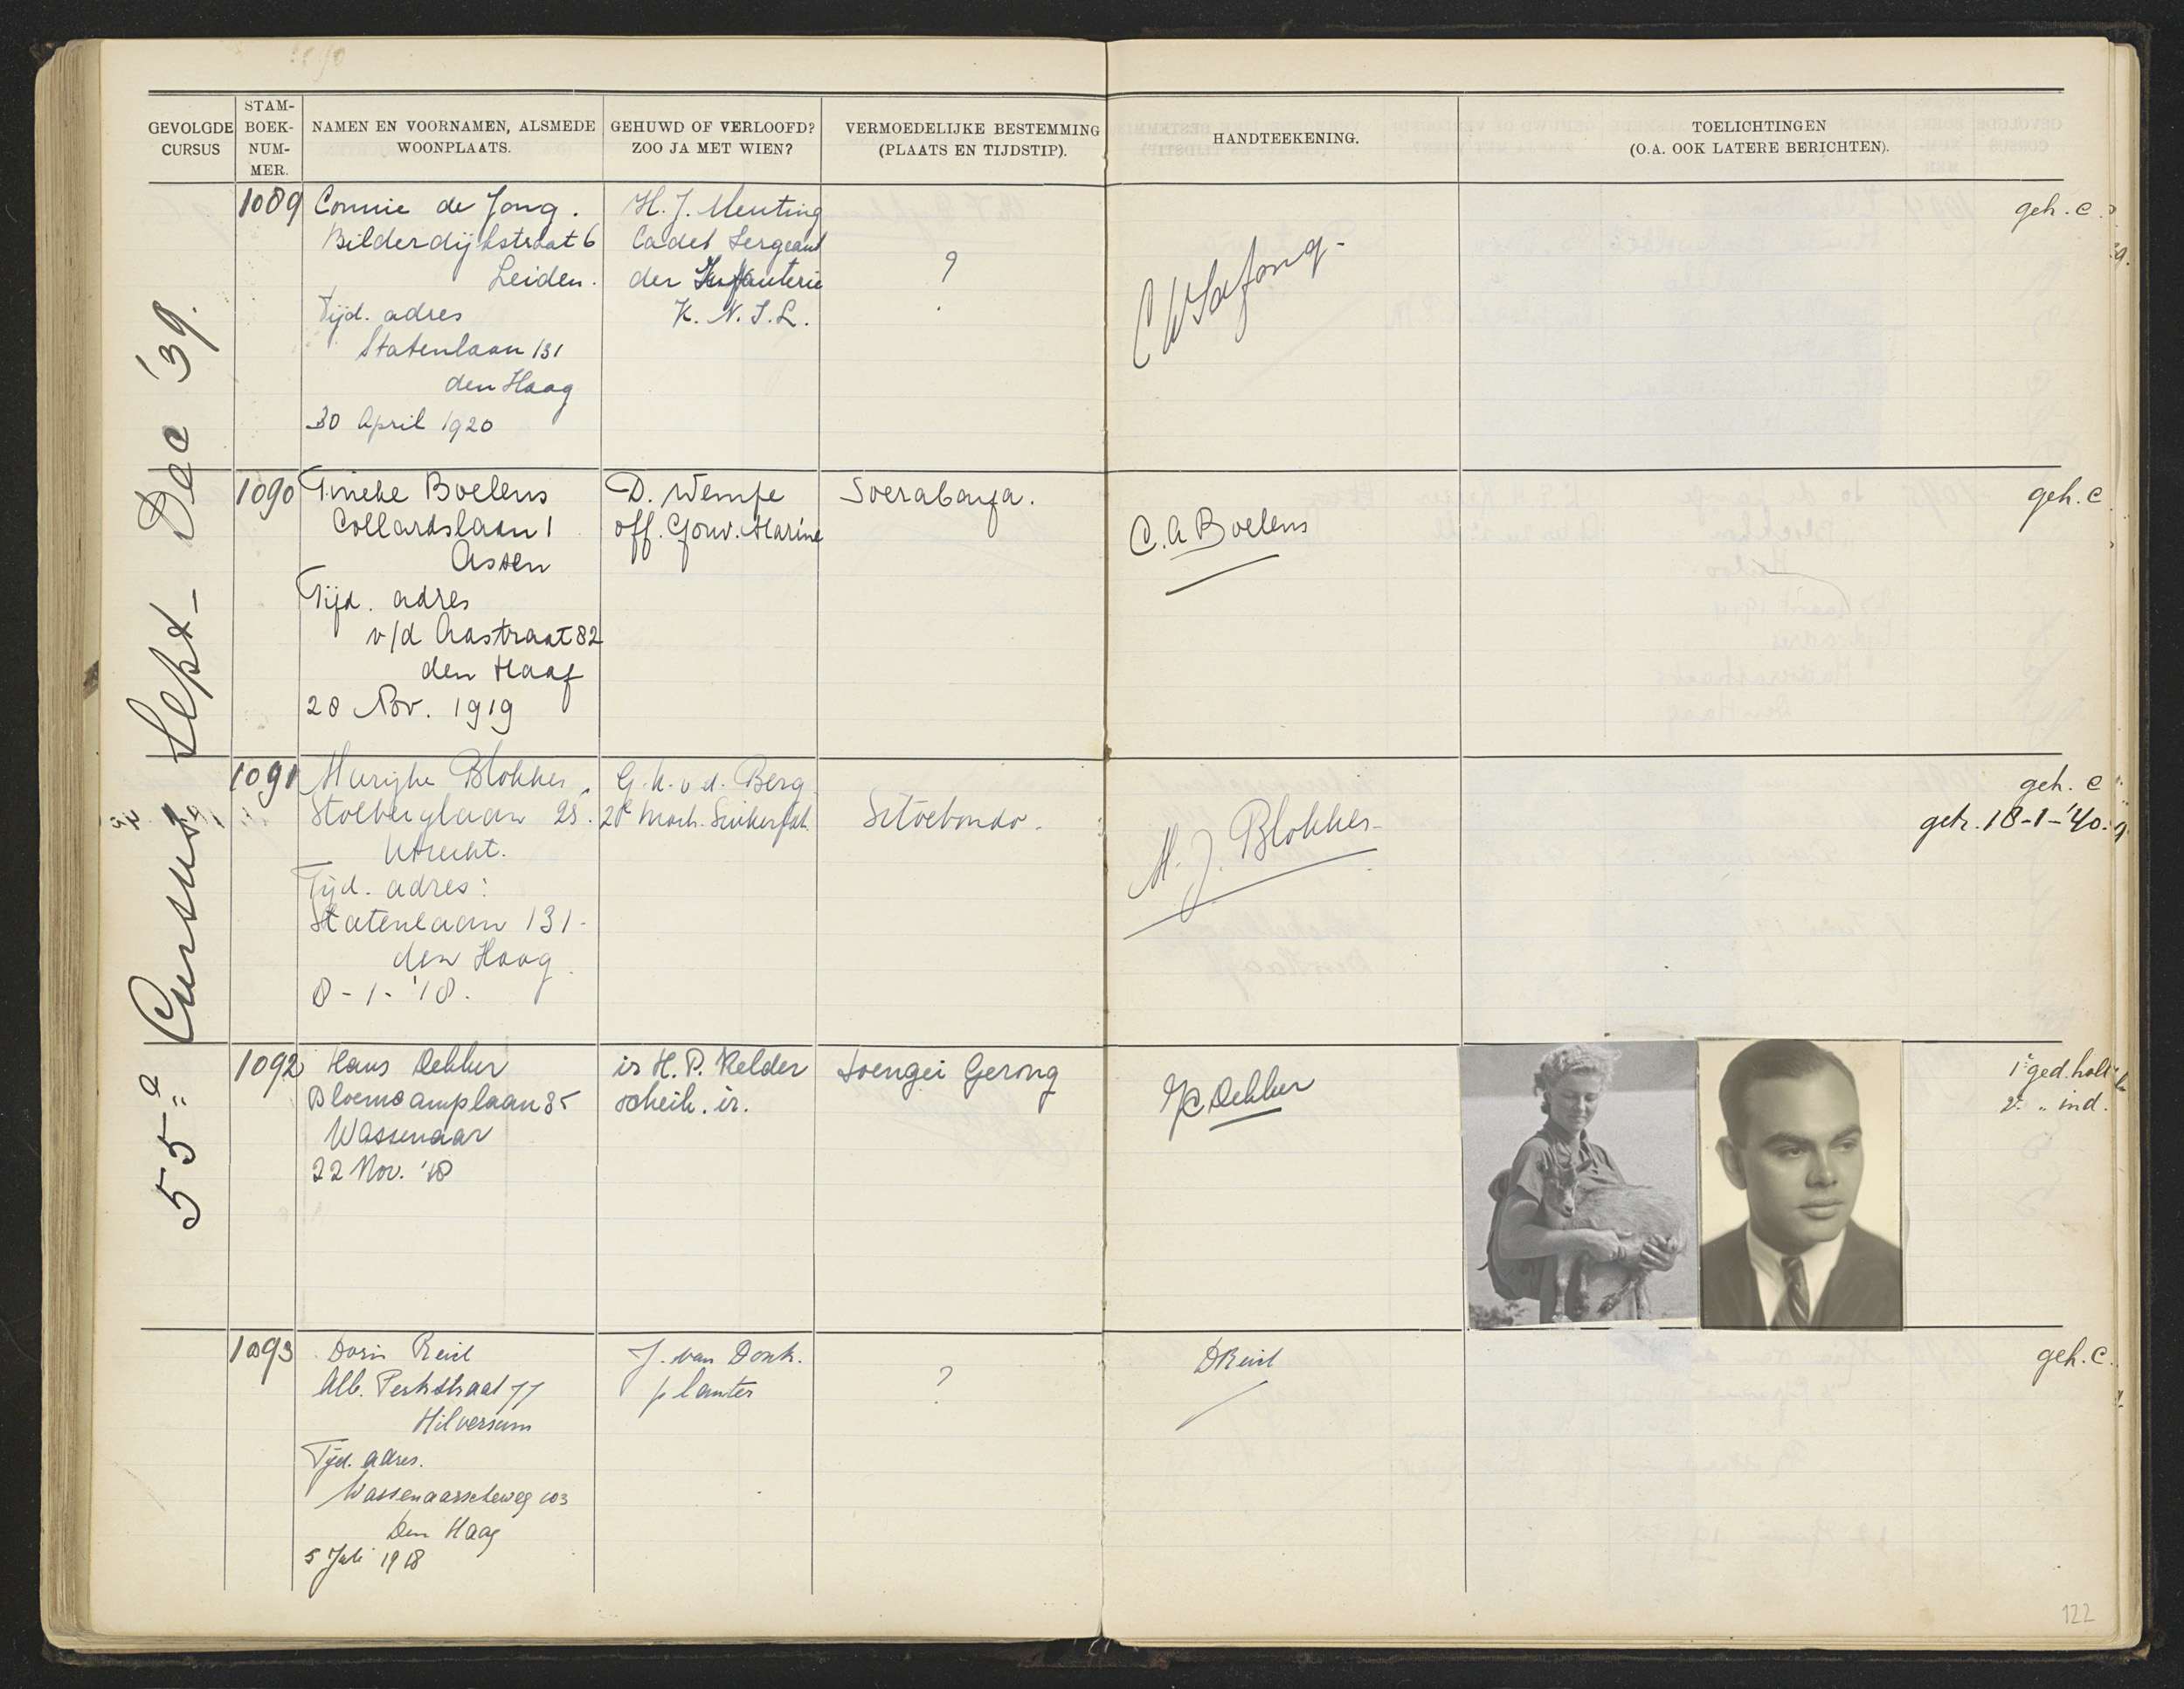 GEVOLGDE CURSUS
STAM-BOEK-NUM-MER.
NAMEN EN VOORNAMEN, ALSMEDE WOONPLAATS.
GEHUWD OF VERLOOFD? ZOO JA MET WIEN?
VERMOEDELIJKE BESTEMMING (PLAATS EN TIJDSTIP).
HANDTEEKENING.
TOELICHTINGEN (O.A. OOK LATERE BERICHTEN).
55e Cursus Sept - Dec '39.
1089
Connie de Jong.
Bilderdijkstraat 6
Leiden.
Tijd. adres
Statenlaan 131
den Haag
30 April 1920
H. J. Meuting
Cadet Sergeant
der Infanterie
K. N. I. L.
?
geh. c.
1090
Tineke Boelens
Collardslaan 1
Assen
Tijd. adres
v/d Aastraat 82
den Haag
28 Nov. 1919
D. Wempe
off. Gouv. Marine
Soerabaya.
C. A Boelens
geh. c
1091
Marijke Blokker
Stolberglaan 25.
Utrecht.
Tijd. adres:
Statenlaan 131-
den Haag.
8-1-'18.
G. K. v. d. Berg
2e mach. Suikerfab.
Sitoebondo.
M. J. Blokker
geh. c
getr. 18-1-'40.
1092
Hans Dekker
Bloemcamplaan 85
Wassenaar
22 Nov. '18
ir H. P. Kelder
scheik. ir.
Soengei Gerong
Dekker
1e ged. holl.
2e " ind.
1093
Doris Reul
Alb. Perkstraat 77
Hilversum
Tijd. adres.
Wassenaarscheweg 103
Den Haag
5 Juli 1918
J. van Donk.
planter
?
D Reul
geh. c.
122